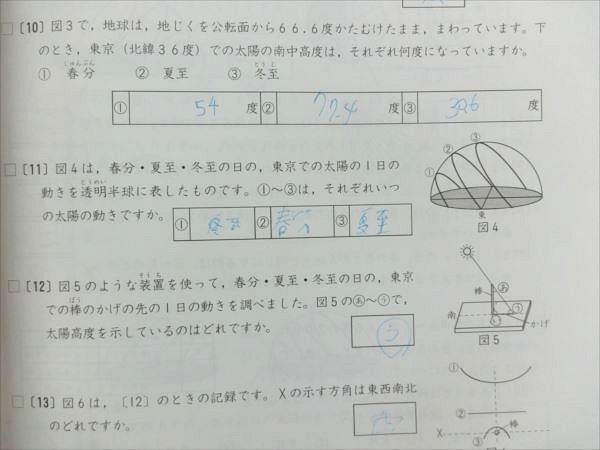 [10] 図3で，地球は，地じくを公転面から66.6度かたむけたまま，まわっています。下
のとき，東京（北緯36度）での太陽の南中高度は，それぞれ何度になっていますか。
しゅんぶん
とうじ
① 春分 ② 夏至 ③ 冬至
① 54 度 ② 77.4 度 ③ 30.6 度
[11] 図4は，春分・夏至・冬至の日の，東京での太陽の1日の
とうめい
動きを透明半球に表したものです。①～③は，それぞれいつ
の太陽の動きですか。
① 冬至 ② 春分 ③ 夏至
① ② ③
東
図4
そうち
[12] 図5のような装置を使って，春分・夏至・冬至の日の，東京
ぼう
での棒のかげの先の1日の動きを調べました。図5のあ～うで，
太陽高度を示しているのはどれですか。
う
棒 あ
南 い う
かげ
図5
[13] 図6は，〔12〕のときの記録です。Xの示す方角は東西南北
のどれですか。
①
②
棒
X
③